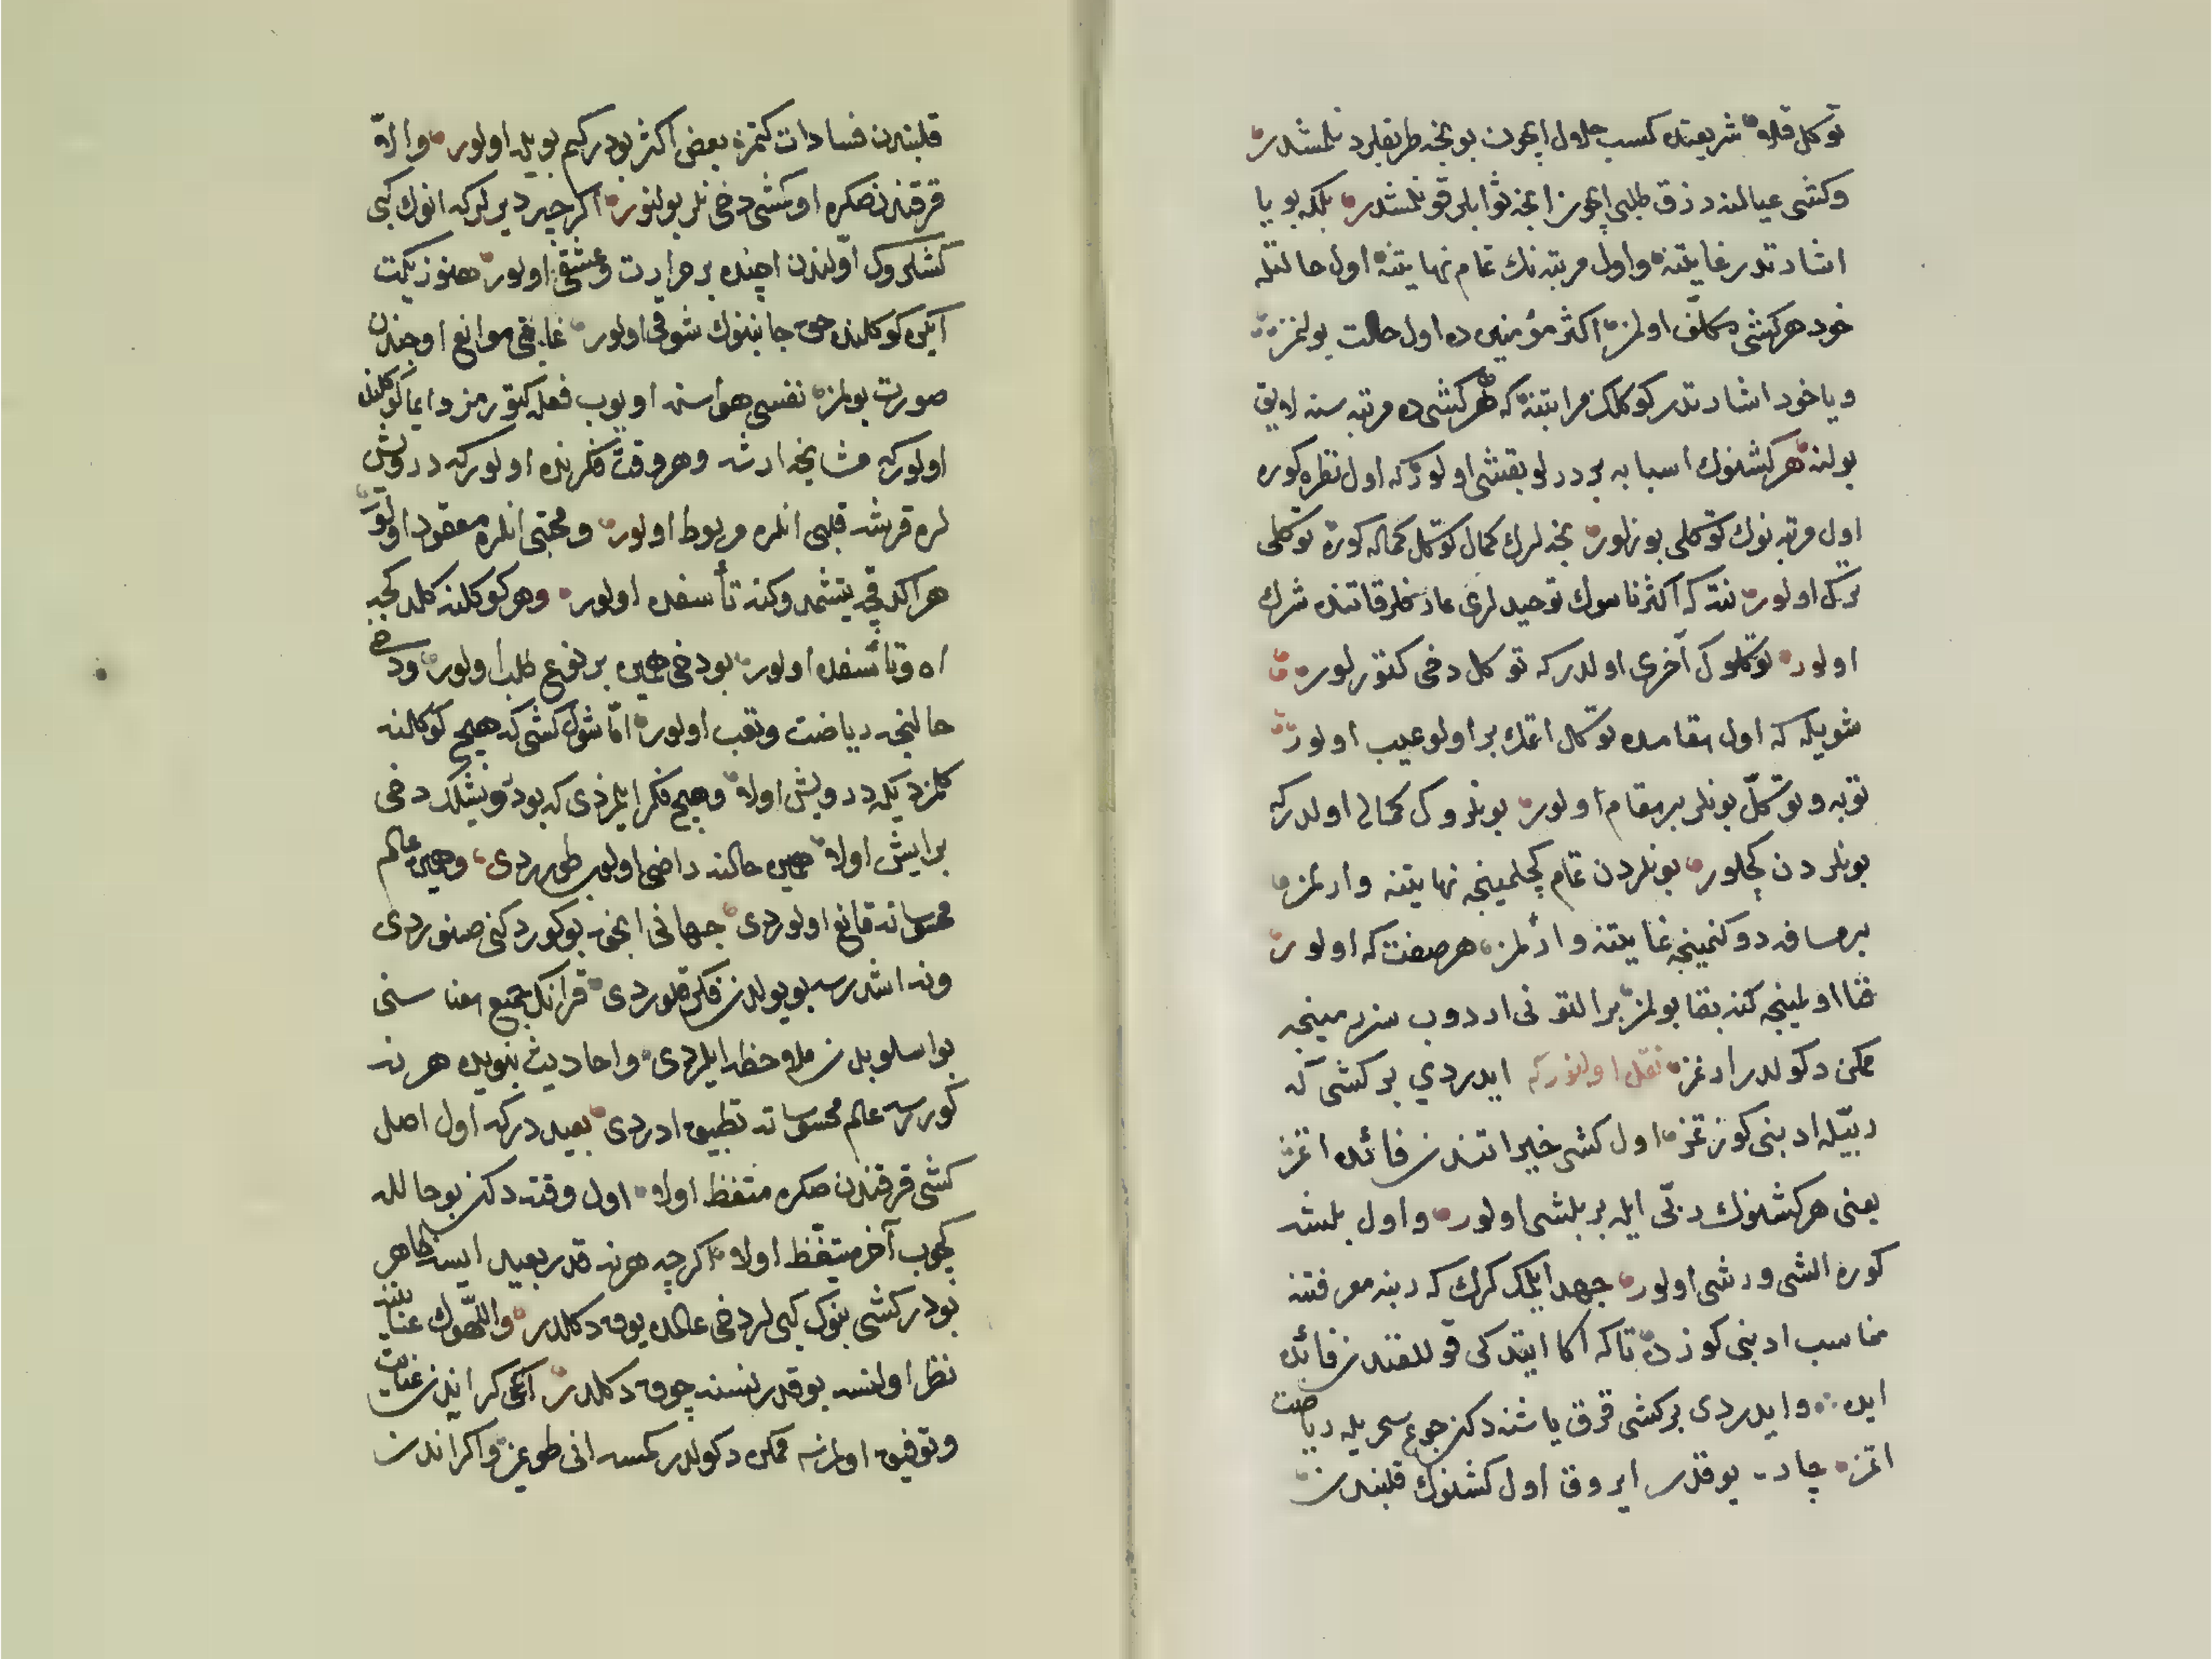 توكل قلاه شريعتده كسب حلال ايچون بو نجه طريقلر دنلمشدر
وكشى عيالنه رزق طلبى ايچون انجه ثوابلر قونلمشدر بلكه بو يا
اشارتدر غايتنه واول مرتبه نك تمام نهايتنه اول حالتله
خود هر كشى مكلف اولمز اكثر مؤمنين ده اول حالت بولنمز
ويا خود اشارتدر كوكلك مراتبنه كه هر كشى ده مرتبه سنه لايق
بولنه هر كشنوك اسبابه بر درلو بقشى اولور كه اول نظره كوره
اول مرتبه نوك توكلى بوزلور نجه لرك كمال توكل كماله كوره توكلى
ترك اولور نته كه اكثر ناسوك توحيدلرى عارفلر قاتنده شرك
اولور توكلوك آخرى اولدر كه توكل دخى كتورلور
شويله كه اول مقامده توكل اتمك بر اولو عيب اولور
توبه وتوكل بونلر بر مقام اولور بونلروك كمالى اولدر كه
بونلردن كچلور بونلردن تمام كچلمينجه نهايتنه وارلمز
بر مسافه دوكنمينجه غايتنه وارلمز هر صفت كه اولور
فنا اولمينجه كنه بقا بولمز بر التونى اردوب سزرمينجه
ممكن دكولدر ارنمز نقل اولنور كه ايدردي بر كشى كه
ربيله ادبنى كوزتمز اول كشى خيراتندن فائده اتمز
يعنى هر كشنوك ربى ايله بر بلشى اولور واول بلشه
كوره الشى ورشى اولور جهد ايلمك كرك كه ربنه معرفتنه
مناسب ادبنى كوزده تاكه اكا ايتدكى قوللغندن فائده
ايده وايدردى بر كشى قرق ياشنه دكن جوع سحريله رياضت
اتمزه چاره يوقدر ايروق اول كشنوك قلبندن
قلبندن فسادات كتمز بعض اكثر بودر كيم بويله اولور والا
قرقندن صكره اوكشى دخى نلر بولنور اكر چه ديرلر كه انوك كبى
كشلروك اولندن ايچنده بر حرارت وعشق اولور هنوز يكت
ايكن كوكلنده حق جانبنوك شوقى اولور غايتى موانع اوجندن
صورت بولمز نفسى هواسنه اويوب فعله كتورمز دايما كوكلنده
اولور كه مشايخه ارشه وهر وقت فكرنده اولور كه درويش
لره قرشه قلبى انلره مربوط اولور ومحبتى انلره معقود اولور
هر اكدقچه يتشمدوكنه تأسفده اولور وهر كوكلنه كلدكجه
اه وتأسفده اولور بو دخى همين بر نوع طلب اولور ودخى
حالنجه رياضت وتعب اولور اما شول كشى كه هيچ كوكلنه
كلمزديكه درويش اولا وهيچ فكر ايلمزدى كه بو درويشلك دخى
بر ايش اولا همين حالنه راضى اولوب طورردى وهمين عالم
محسوساته قانع اولوردى جهانى انجق بو كوردكنى صنوردى
ونه اشدرسه بو يولدن فكر قلوردى قرانك جميع معناسنى
بو اسلوبدن ملاحظه ايلردى واحاديث نبويده هر نه
كوررسه عالم محسوساته تطبيق ادردى بعيددر كه اول اصل
كشى قرقندن صكره متيقظ اولا اول وقته دكن بو حالله
كچوب آخر متيقظ اولا اكرچه هر نه قدر بعيد ايسه ظاهر
بودر كشى بنوك كبى لر دخى عالمده يوق دكلدر واللهوك عنايتنه
نظر اولنسه بو قدر نسنه چوق دكلدر آنچى كر اندن عنايت
وتوفيق اولمزسه ممكن دكولدر كمسه انى طويمز واكر اندن